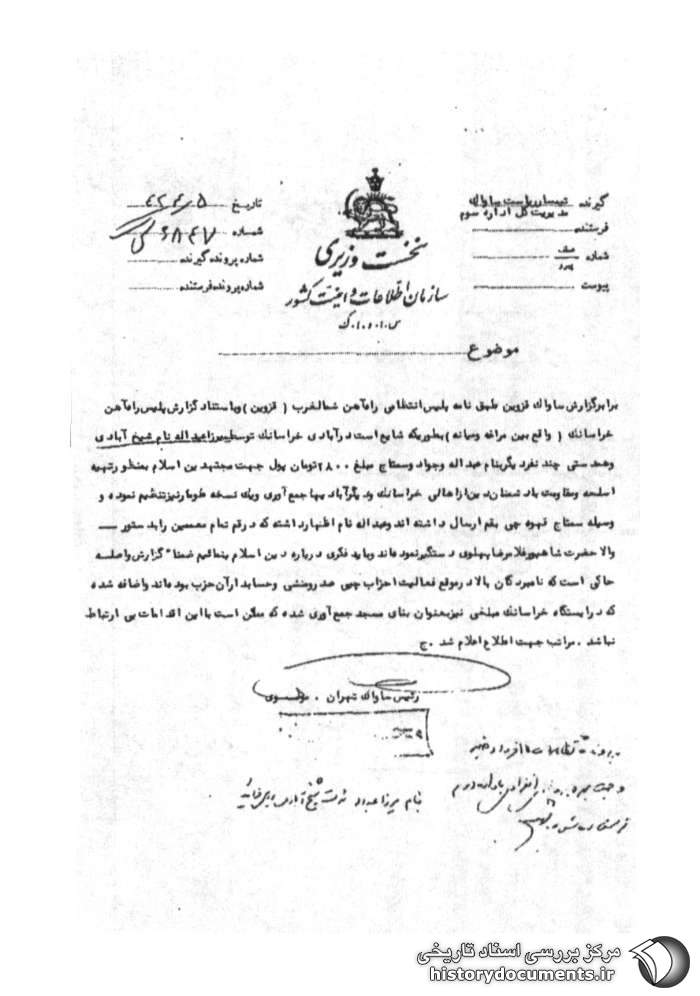 گیرنده تیمسار ریاست ساواك
مدیریت کل اداره سوم
فرستنده
شماره
پیوست
نخست وزیری
سازمان اطلاعات و امنیت کشور
س.ا.و.ا.ك
تاریخ
شماره
شماره پرونده گیرنده
شماره پرونده فرستنده
موضوع
برابر گزارش ساواك قزوین طبق نامه پلیس انتظامی راه آهن شمالغرب ( قزوین ) و باستناد گزارش پلیس راه آهن
خراسانك ( واقع بین مراغه و میانه ) بطوریکه شایع است در آبادی خراسانك توسط میرزا عبداله نام شیخ آبادی
و همدستی چند نفر دیگر بنام عبداله و جواد و ممتاج مبلغ ۲۸۰۰ تومان پول جهت مجتهدین اسلام بمنظور تهیه
اسلحه و مقاومت با دشمنان دین از اهالی خراسانك و دیگر آبادیها جمع آوری و یك نسخه طومار نیز تنظیم نموده و
وسیله ممتاج قهوه چی بقم ارسال داشته اند و عبداله نام اظهار داشته که در قم تمام معممین را بدستور
والاحضرت شاهپور غلامرضا پهلوی دستگیر نموده اند و باید فکری درباره دین اسلام بنمائیم ضمنا" گزارش واصله
حاکی است که نامبردگان بالا در موقع فعالیت احزاب چپی صدر و منشی و حسابدار آن حزب بوده اند و اضافه شده
که در ایستگاه خراسانك مبلغی نیز بعنوان بنای مسجد جمع آوری شده که ممکن است با این اقدامات بی ارتباط
نباشد . مراتب جهت اطلاع اعلام شد . ج
رئیس ساواك تهران . مولوی
مرکز بررسی اسناد تاریخی
historydocuments.ir